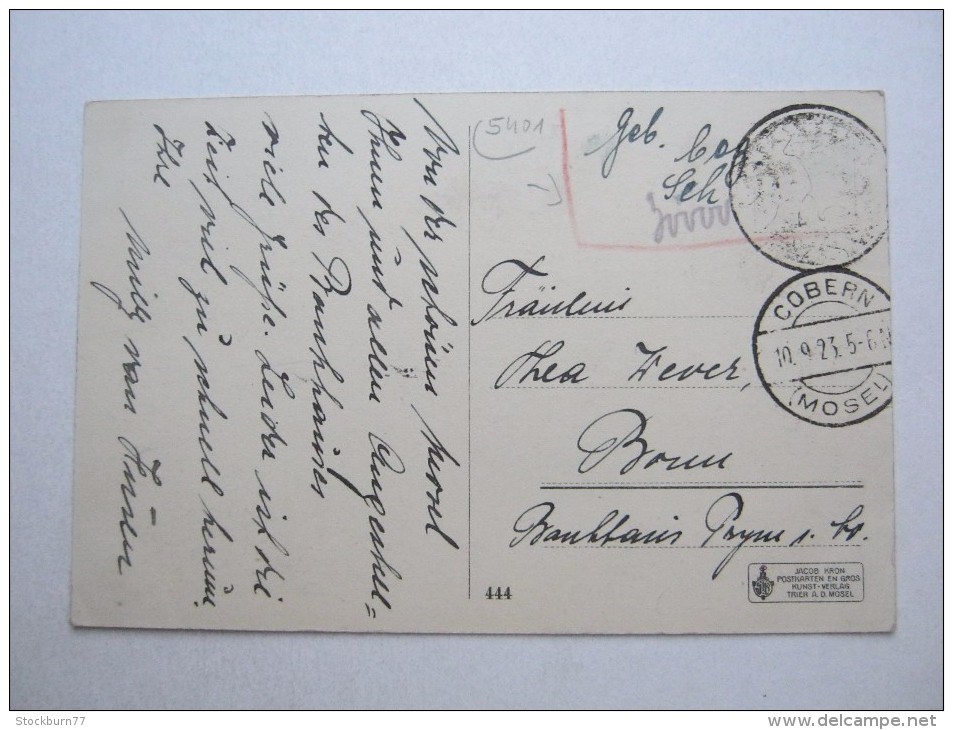 Von der schönen Mosel
Ihnen und allen Angestell=
ten des Bankhauses
viele Grüße. Leider ist die
Zeit viel zu schnell herum.
Ihre
Willy van
5401
Geb.
Sch
COBERN
10.9.23.5-6
(MOSEL)
Fräulein
Thea Wever,
Bonn
Bankhaus
444
JACOB KRON
POSTKARTEN EN GROS
KUNST-VERLAG
TRIER A. D. MOSEL
Stockburn77
www.delcampe.net